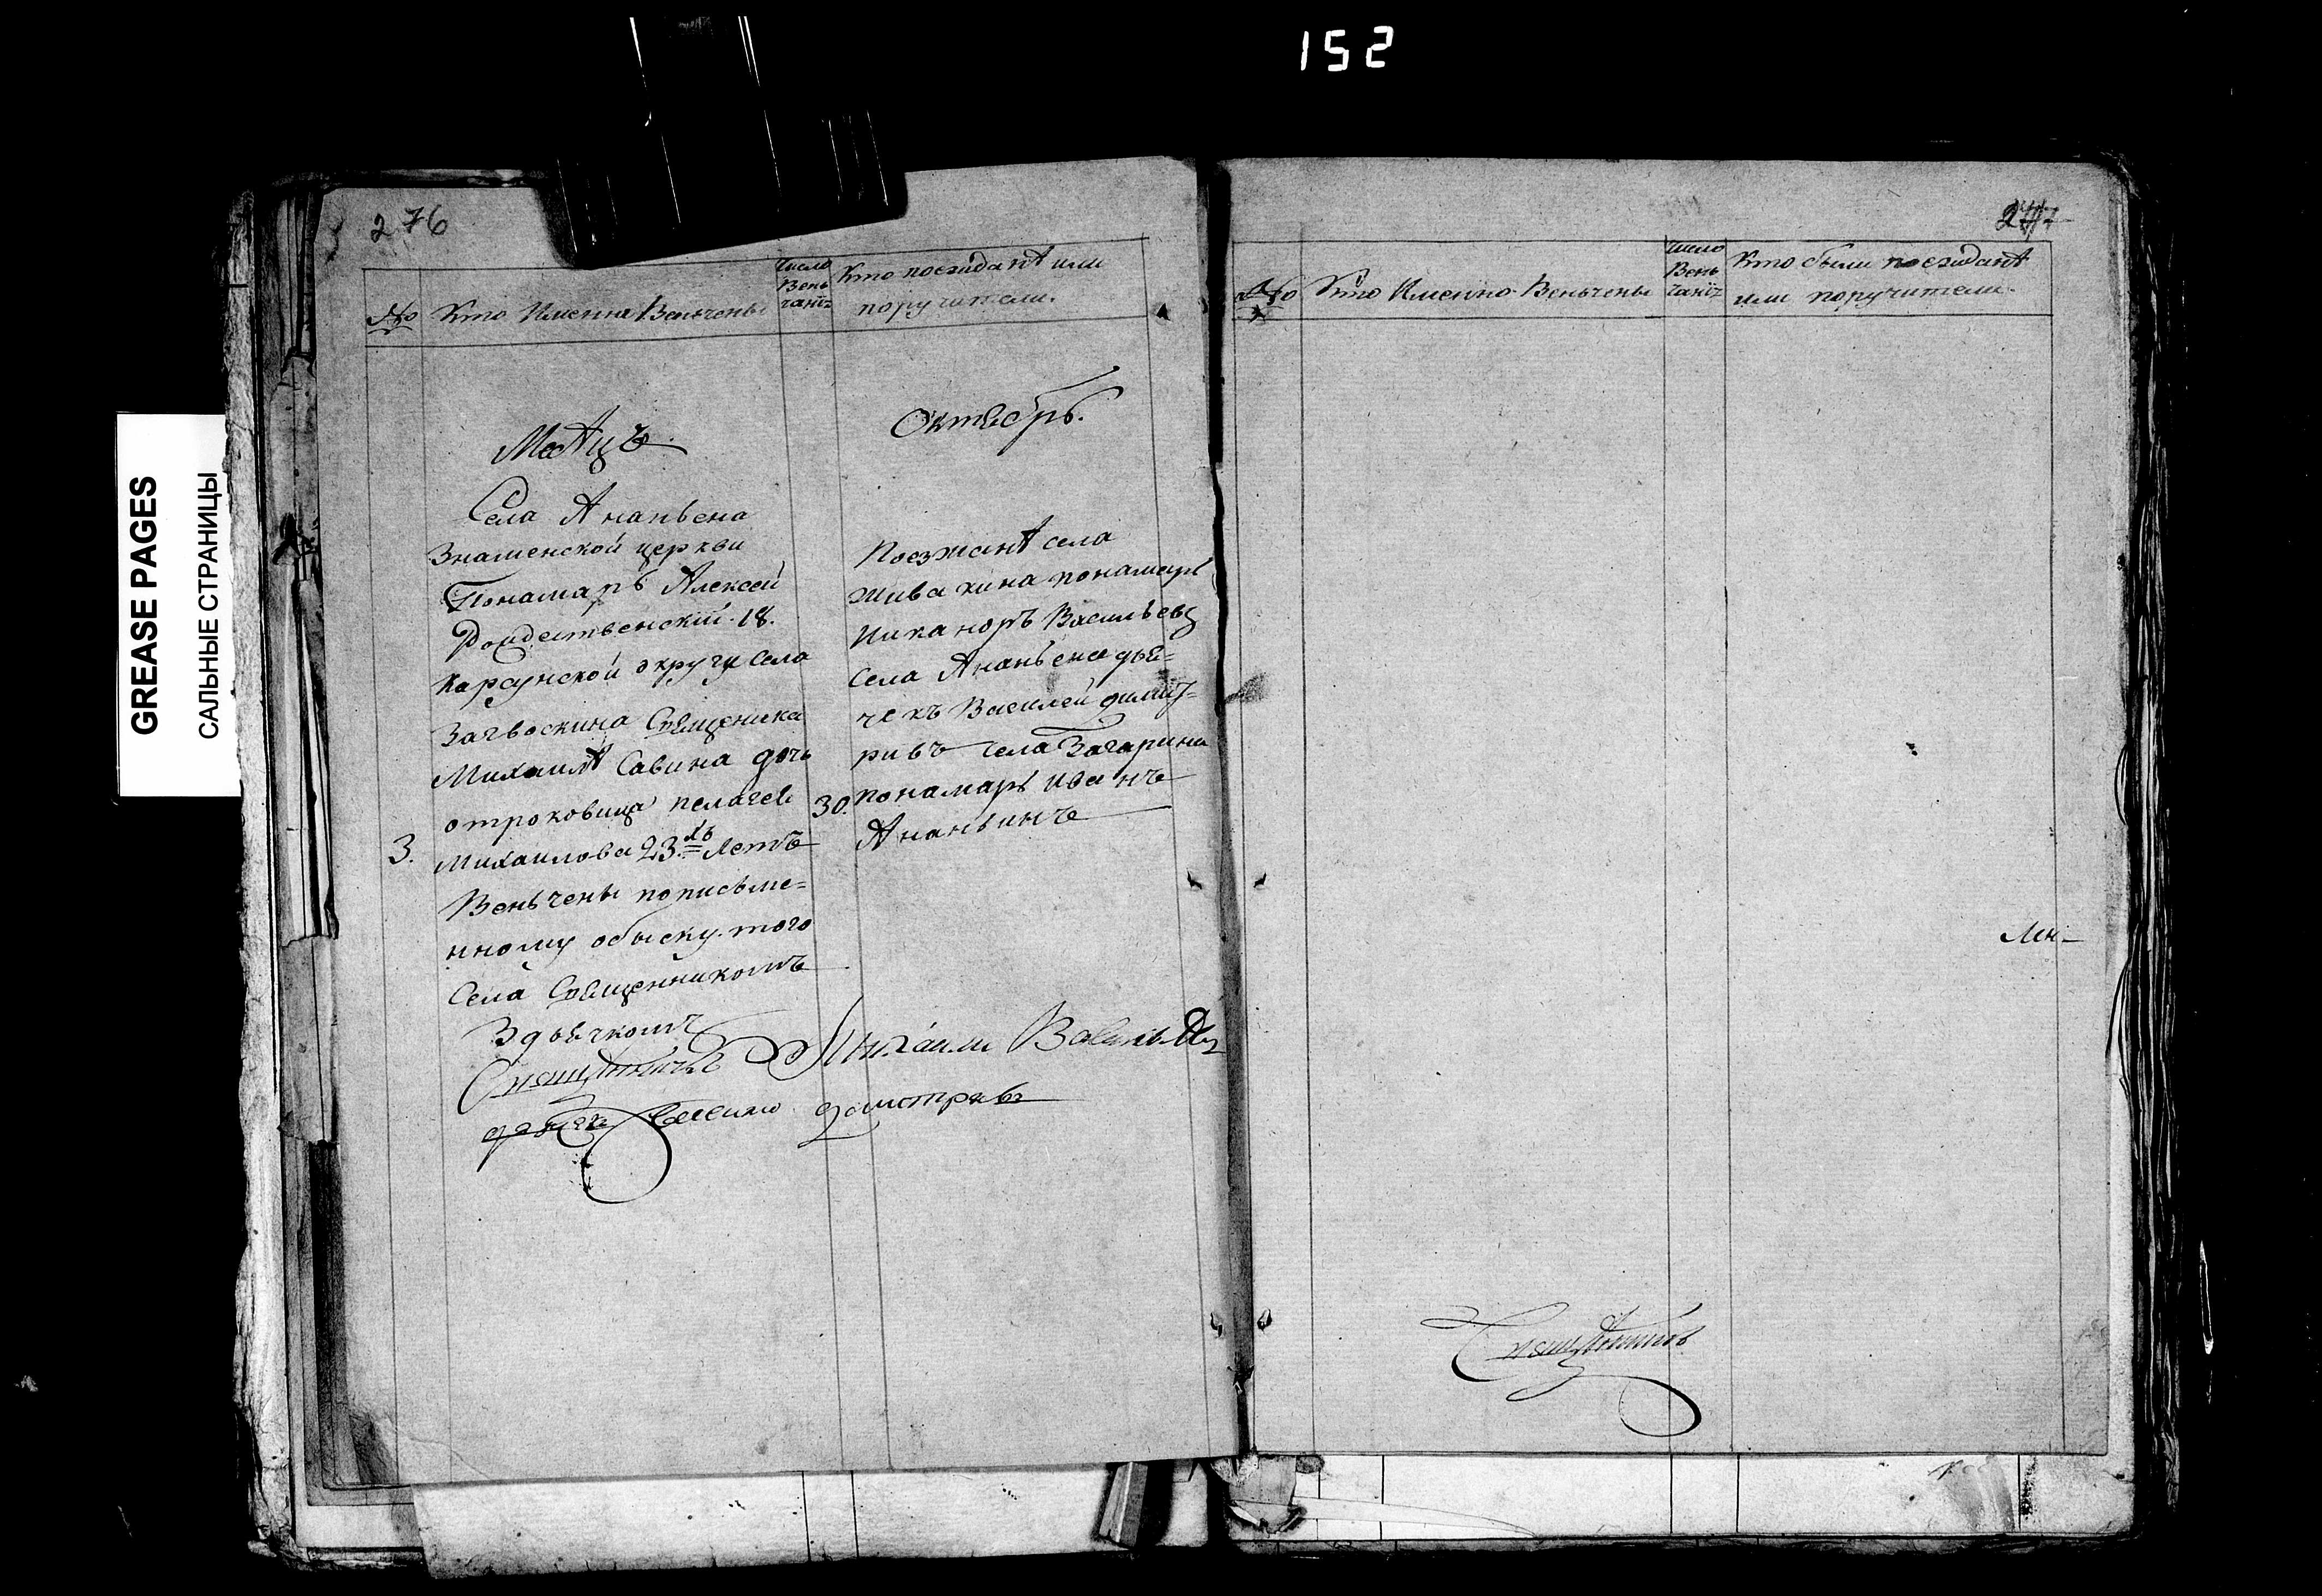 152
GREASE PAGES
САЛЬНЫЕ СТРАНИЦЫ
276
№ Кто Именна Веньчены
Число Вень чанiя
Кто поезиданѧ или
поручители.
Мѣѧцъ
Октябрь.
Села Ананьена
Знаменской церкви
Понамарь Алексей
Рождественскiй. 18.
Карсунской округи села
Загвоскина Священика
Михаилѧ Савина дочь
отроковица пелагея
3. Михаилова 23.хъ Летъ
Веньчены пописьме=
нному обыску того
Села Священникомъ
Здьячкомъ
30.
Поезжанѧ села
Живахина понамарь
Никаноръ Васильевъ
Села Ананьена дья=
чекъ Василей димит=
ривъ села Загарина
понамарь иванъ
Ананьинъ
Священникъ Михаилъ
дьячекъ Василий димитревъ
277
№ Кто Именно Веньчены
Число Вень чанiя
Кто были поезиданѧ
или поручители